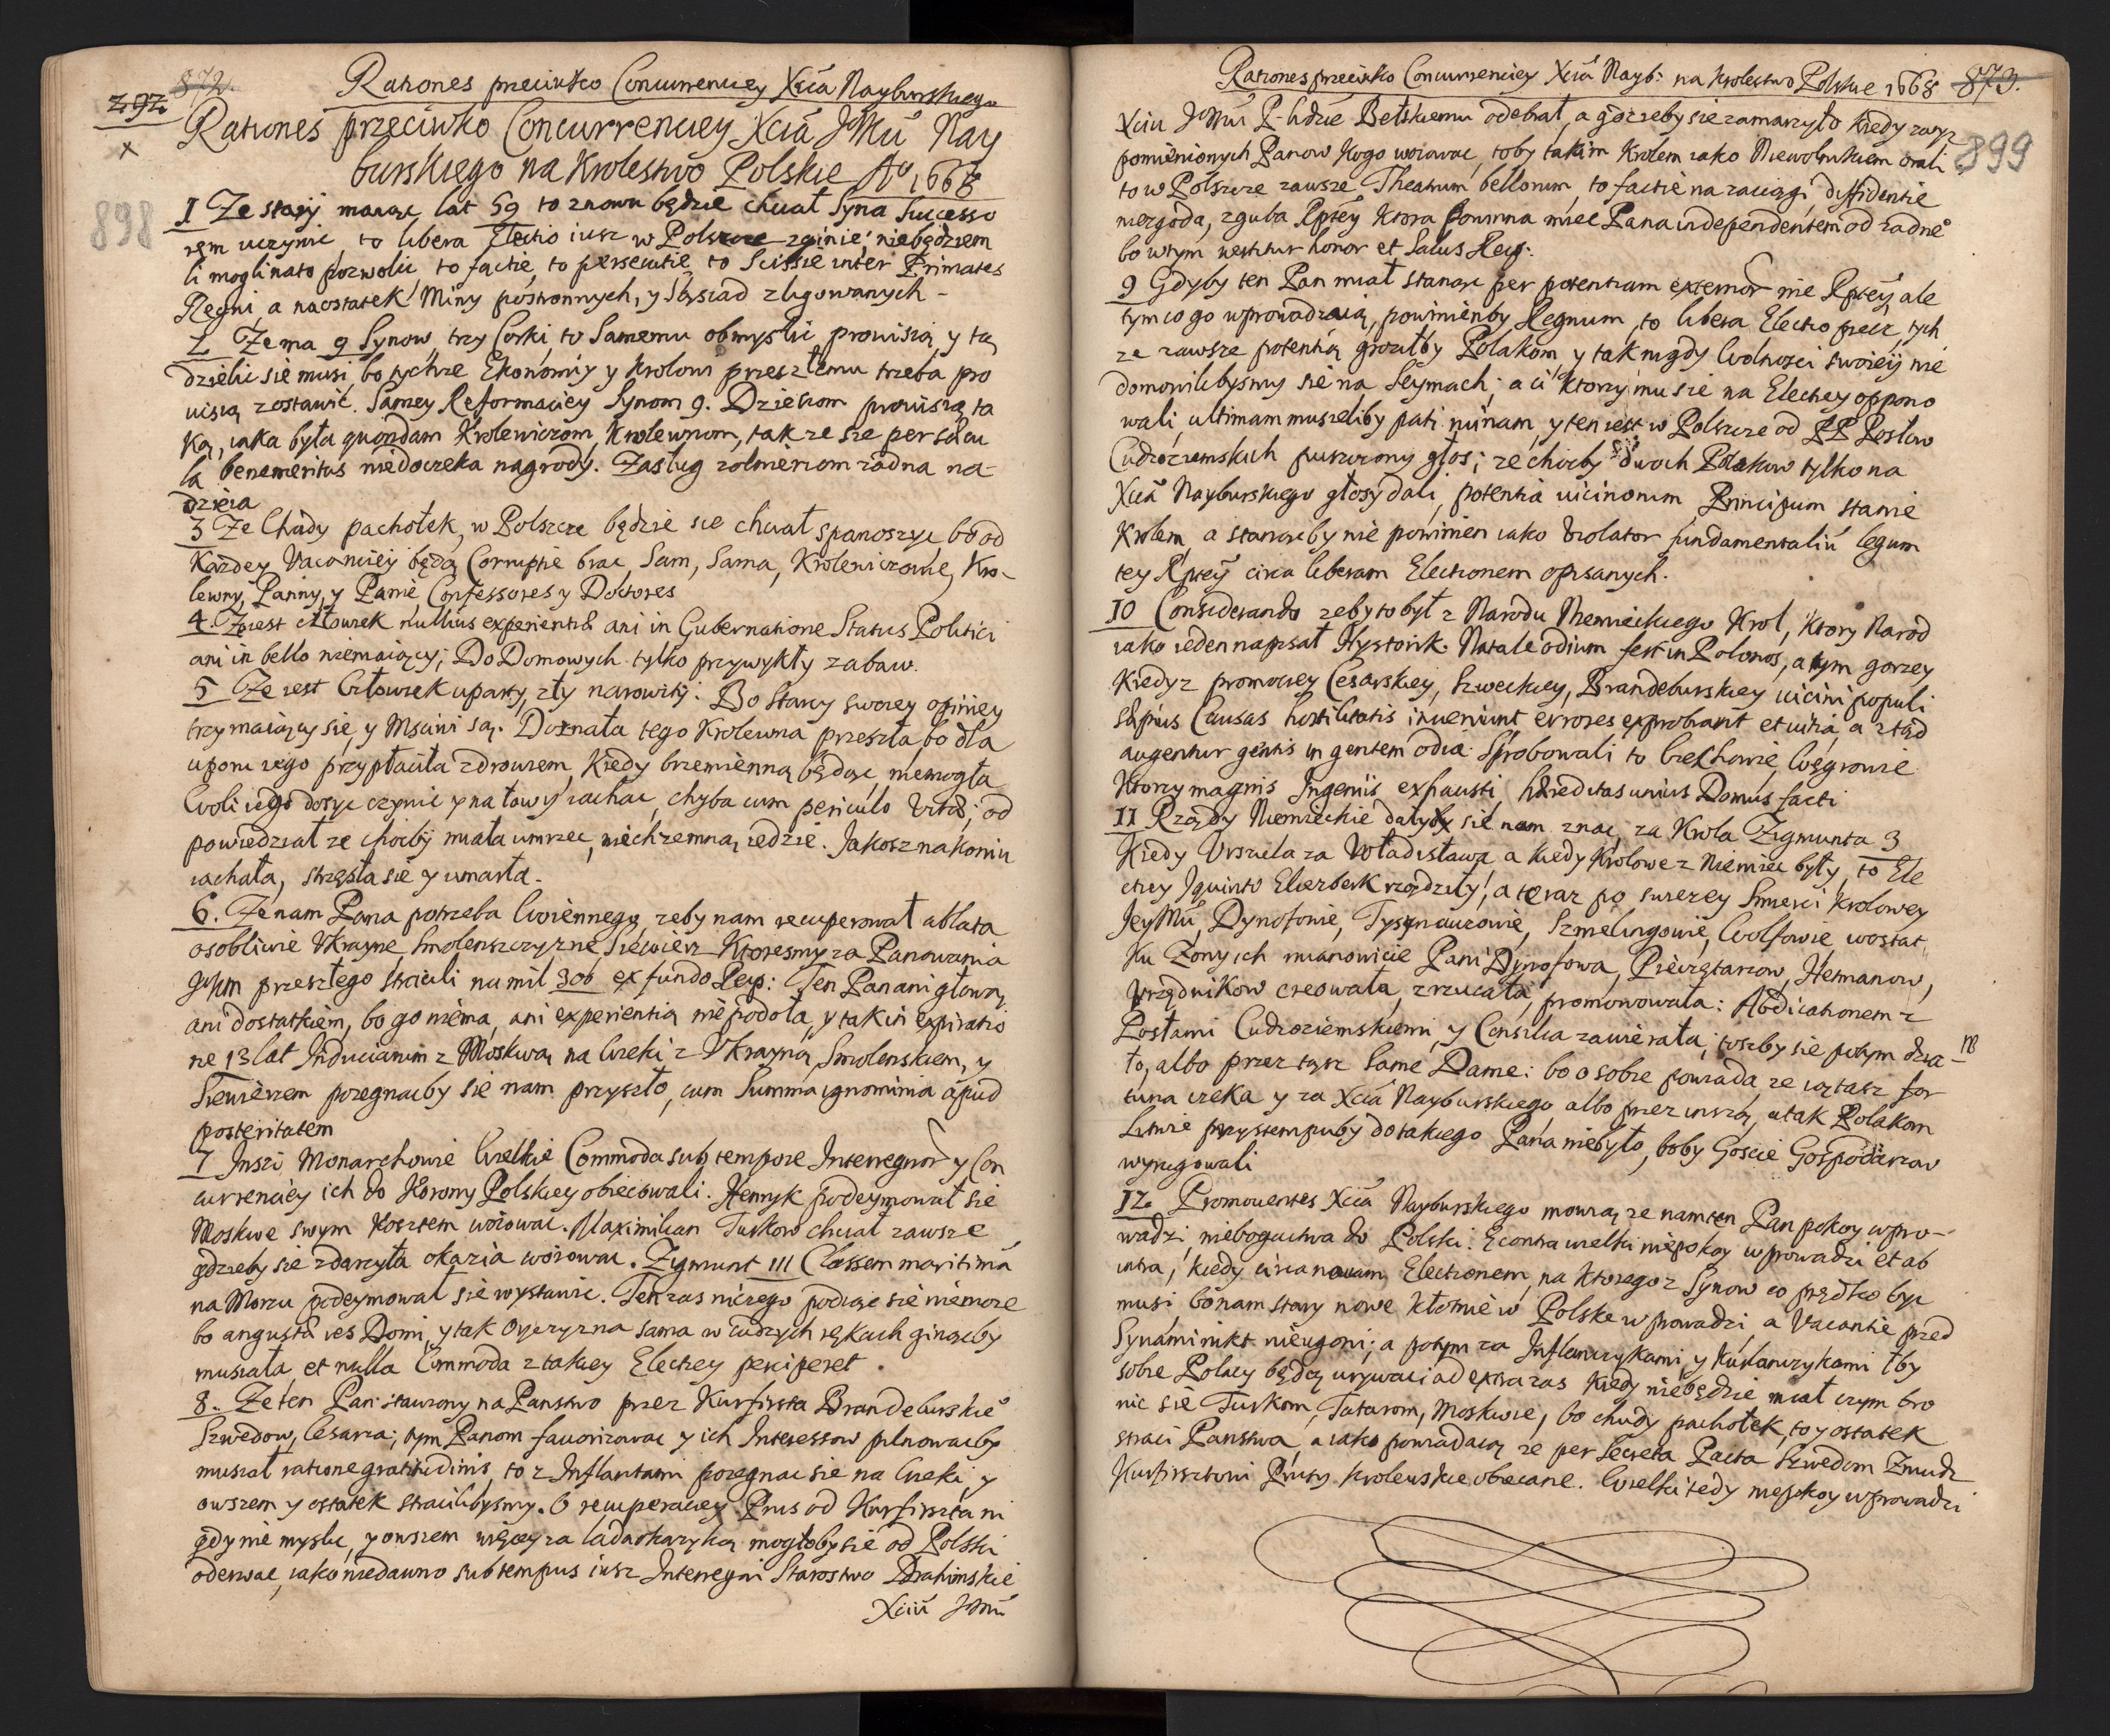 872.
292
x
898
Rationes przeciwko Concurrencyey Xcia Nayburskiego
Rationes przeciwko Concurrencyey Xcia JoMci Nay
burskiego na Krolestwo Polskie Ao 1668
1 Ze stary maiąc lat 59 to znowu będzie chciał Syna Successo
rem uczynic to libera Electio iusz w Polszcze zginie; niebędziem
li mogli na to pozwolic to factie, to persecutie, to Scissie inter Primates
Regni, a naostatek Miny postronnych, y Sąsiad zligowanych -
2 Ze ma 9 Synow, trzy Corki, to Samemu obmyslic prowisią y tą
dzielic sie musi, bo tychze Ekonomiy y Krolowi przeszłemu trzeba pro
uisią zostawic. Samey Reformaciey Synom 9. Dzieciom prouisią ta
ką, iaka była quondam Krolewiczom, Krolewnom, tak ze sie per sæcu
la benemeritus niedoczeka nagrody. Zasług zołnierzom zadna na-
dzieia
3 Ze Chudy pachołek, w Polszcze będzie sie chciał spanoszyc bo od
Kazdey Vacanciey będą Corruptie brac, Sam, Sama, Krolewiczowie, Kro-
lewny, Panny, y Panie, Confessores y Doctores
4. Ze iest człowiek nullius experientiæ ani in Gubernatione Status Politici
ani in bello niemaiący; Do Domowych tylko przywykły zabaw.
5 Ze iest Człowiek uparty, zły narowisty. Bo Starcy swoiey opiniey
trzymaiący sie, y Msciwi są. Doznała tego Krolewna przeszła, bo dla
uporu iego przypłaciła zdrowiem, Kiedy brzemienną będąc, niemogła
Woli iego dosyc czynic y na łowy iachac, chyba cum periculo Vitæ; od
powiedział ze chocby miała umrzec, niech zemną iedzie. Jakosz na koniu
iachała, strzęsła sie y umarła.
6. Ze nam Pana potrzeba Woiennego, zeby nam recuperował ablata
osobliwie Vkrainę, Smolenszczyznę, Siewierz Ktoresmy za Panowania
JKm przeszłego stracili na mil 300 ex fundo Reip: Ten Pan ani głową,
ani dostatkiem, bo go niema, ani experientią niepodoła, y tak in expiratio
ne 13 lat Induciarum z Moskwą na Wieki z Vkrainą, Smolenskiem, y
Siewierzem pozegnacby sie nam przyszło, cum Summa ignominia apud
posteritatem
7 Inszi Monarchowie Wielkie Commoda sub tempore Interregnor y Con
currenciey ich do Korony Polskiey obiecowali. Henryk podeymował sie
Moskwe swym Kosztem woiowac. Maximilian Turkow chciał zawsze
gdzieby sie zdarzyła okazia woiowac. Zygmunt III Classem maritimã
na Morzu podeymował sie wystawic. Ten zas niczego podiąc sie niemoze
bo angusta res Domi, y tak Oyczyzna sama w cudzych rękach ginącby
musiała, et nulla Commoda z takiey Electiey perciperet.
8. Ze ten Pan stawiony na Panstwo przez Kurfirsta Brandeburskie°
Szwedow, Cesarza; tym Panom fauorizowac y ich Interessow pilnowacby
musiał ratione gratitudinis, to z Inflantami pozegnac sie na Wieki, y
owszem y ostatek stracilibysmy. O recuperaciey Prus od Kurfirszta ni
gdy nie myslic, y owszem więcey za ladaokazyką mogłoby sie od Polski
oderwac, iako niedawno sub tempus iusz Interregni Starostwo Drahimskie
Xciu JoMci
Rationes przeciwko Concurrenciey Xcia Nayb: na Krolestwo Polskie 1668
873.
899
Xciu JoMci P. Wdzie Bełskiemu odebrał, a gdzieby sie zamarzyło Kiedy z wysz
pomienionych Panow Kogo woiowac, toby takim Krolem iako Niewolnikiem orali
to w Polszcze zawsze Theatrum bellorum, to factie na zaciągi, diffidentie
niezgoda, zguba Rptey Ktora powinna miec Pana independentem od zadne°
bo w tym vertitur honor et Salus Reip:
9 Gdyby ten Pan miał stanąc per potentiam externor nie Rptey, ale
tym co go wprowadzaią, powinienby Regnum, to libera Electio precz, tych
ze zawsze potentią groziłby Polakom, y tak nigdy Wolnosci swoieij nie
domowilibysmy sie na Seymach; a ci Ktorzy mu sie na Electiey oppono
wali, ultimam musieliby pati ruinam, y ten iest w Polszcze od PP Posłow
Cudzoziemskich puszczony głos; ze chocby dwoch Polakow tylko na
Xcia Nayburskiego głosy dali, potentia uicinorum Principum stanie
Krolem, a stanącby nie powinien iako Violator fundamentaliũ legum
tey Rptey circa liberam Electionem opisanych.
10 Considerando zeby to był z Narodu Niemieckiego Krol, Ktory Narod
iako ieden napisał Hystorik. Natale odium fert in Polonos, a tym gorzey
Kiedy z promociey Cesarskiey, Szweckiey, Brandeburskiey uicini populi
sæpius Causas hostilitatis inueniunt, errores exprobrant et uitia, a ztąd
augentur gentis in gentem odia. Sprobowali to Czechowie, Węgrowie
Ktorzy magnis Ingeniis exhausti, hæreditas unius Domus facti
11 Rządy Niemieckie dałyby sie nam znac, za Krola Zigmunta 3
Kiedy Vrszula za Władisława a Kiedy Krolowe z Niemiec były, to Ele
ctiey Jquinto Elizerbek rządziły, a teraz po swiezey Smierci Krolowey
JeyMci, Dynofowie, Tyszenauzowie, Szmelingowie, Wolfowie, wostat
Ku Zony ich mianowicie Pani Dynofowa, Pieczętarzow, Hetmanow,
Vrzędnikow creowała, zrzucała, promowowała: Abdicationem z
Posłami Cudzoziemskiemi, y Consilia zawierała; toszby sie potym dzia- NB
ło, albo przez tęsz Same Dame: bo o sobie powiada ze ią tasz for
tuna czeka y za Xcia Nayburskiego albo przez inszą, a tak Polakom
Litwie przystempuby do takiego Pana niebyło, boby Goscie Gospodarzow
wyrugowali
12. Promouentes Xcia Nayburskiego mowią, ze nam ten Pan pokoy wpro-
wadzi, niebogactwa do Polski. E contra wielki niepokoy wprowadzi et ab
intra, kiedy circa nouam Electionem, na ktorego z Synow co prędko byc
musi, bo nam stary nowe kłotnie w Polske wprowadzi, a Vacantie przed
Synami nikt nieugoni; a potym za Inflanczykami, y Kurlanczykami łby
sobie Polacy będą urywac: ad extra zas Kiedy niebędzie miał czym bro
nic sie Turkom, Tatarom, Moskwie, bo chudy pachołek, to y ostatek
straci Panstwa, a iako powiadaią ze per Secreta Pacta Szwedom Zmudz
Kurfirsztowi Prusy Krolewskie obiecane. Wielki tedy niepokoy wprowadzi